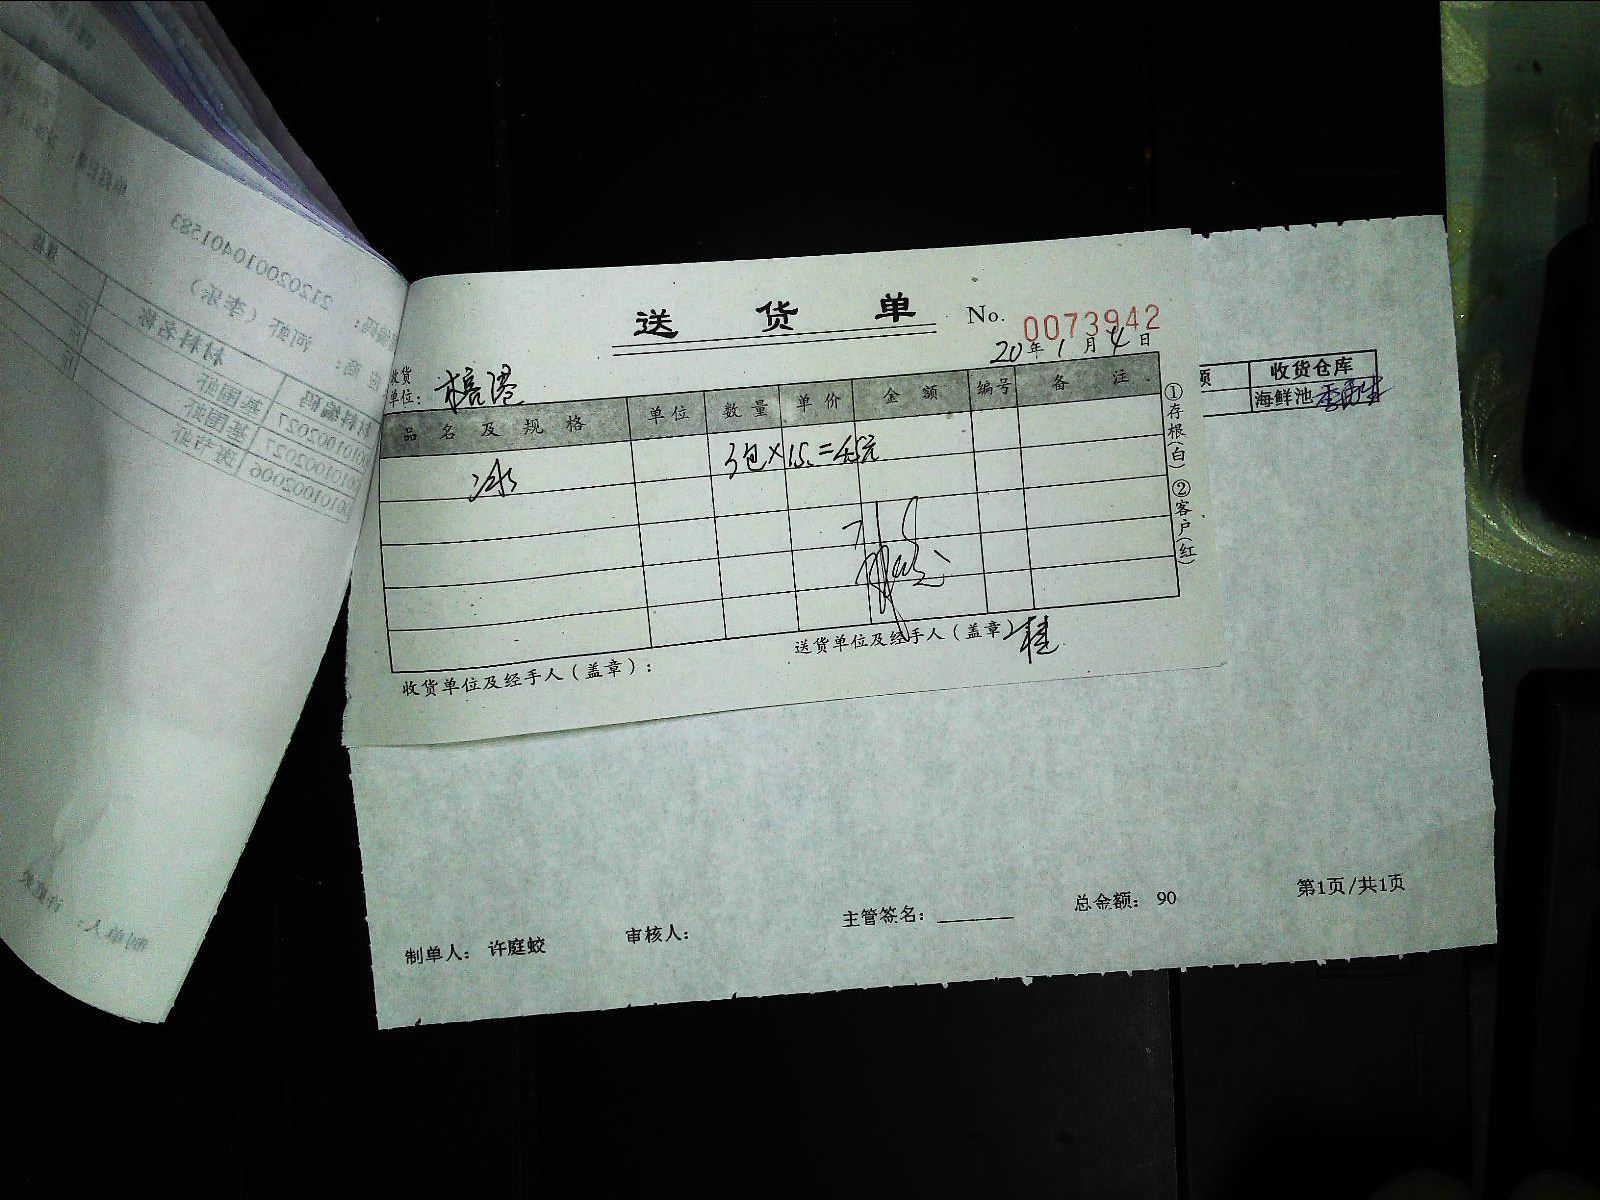 送 货 单 No. 0073942
20年1月4日
收货
单位：榕港
品名及规格 单位 数量 单价 金额 编号 备注
冰 3包×15.=45元
①存根(白) ②客户(红)
收货单位及经手人（盖章）： 送货单位及经手人（盖章） 桂
项 收货仓库
海鲜池
制单人： 许庭蛟 审核人： 主管签名： 总金额： 90 第1页/共1页
212020010401583
河虾（李乐）
材料编码 材料名称
00101002027 基围虾
00101002027 基围虾
00101002006 斑节虾
制单人： 许庭蛟